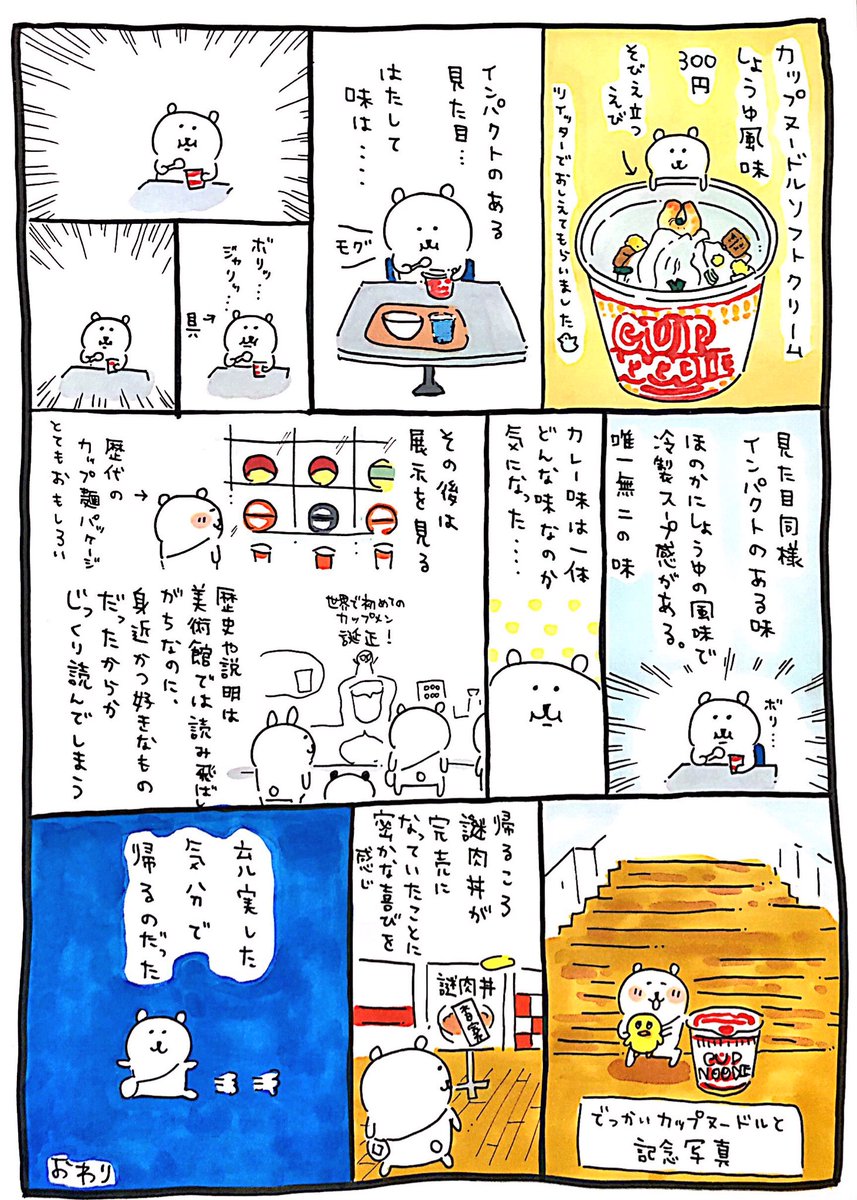 カップヌードルソフトクリーム
しょうゆ風味
300円
そびえ立つ
えび
ツイッターでおしえてもらいました
CUP
NOODLE
インパクトのある
見た目…
はたして
味は‥‥
モグ
ボリッ…
ジャリッ…
具→
見た目同様
インパクトのある味
ほのかにしょうゆの風味で
冷製スープ感がある。
唯一無二の味
ボリ…
カレー味は一体
どんな味なのか
気になった‥‥
その後は
展示を見る
歴代の
カップ麺パッケージ
とてもおもしろい
世界で初めての
カップメン
誕正!
歴史や説明は
美術館では読み飛ばし
がちなのに、
身近かつ好きなもの
だったからか
じっくり読んでしまう
CUP
NOODLE
でっかいカップヌードルと
記念写真
帰るころ
謎肉丼が
完売に
なっていたことに
密かな喜びを
感じ
謎肉丼
充実した
気分で
帰るのだった
おわり